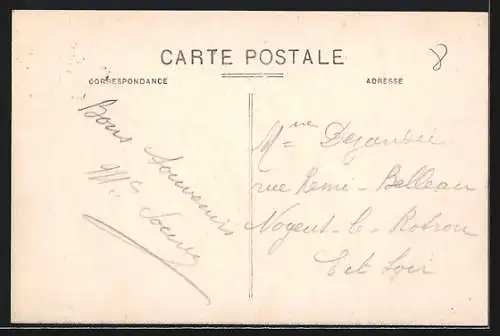 CARTE POSTALE
CORRESPONDANCE
ADRESSE
8
Bons Souvenirs
Mme
rue Remi - Belleau
Nogent - le - Rotrou
E et Loir